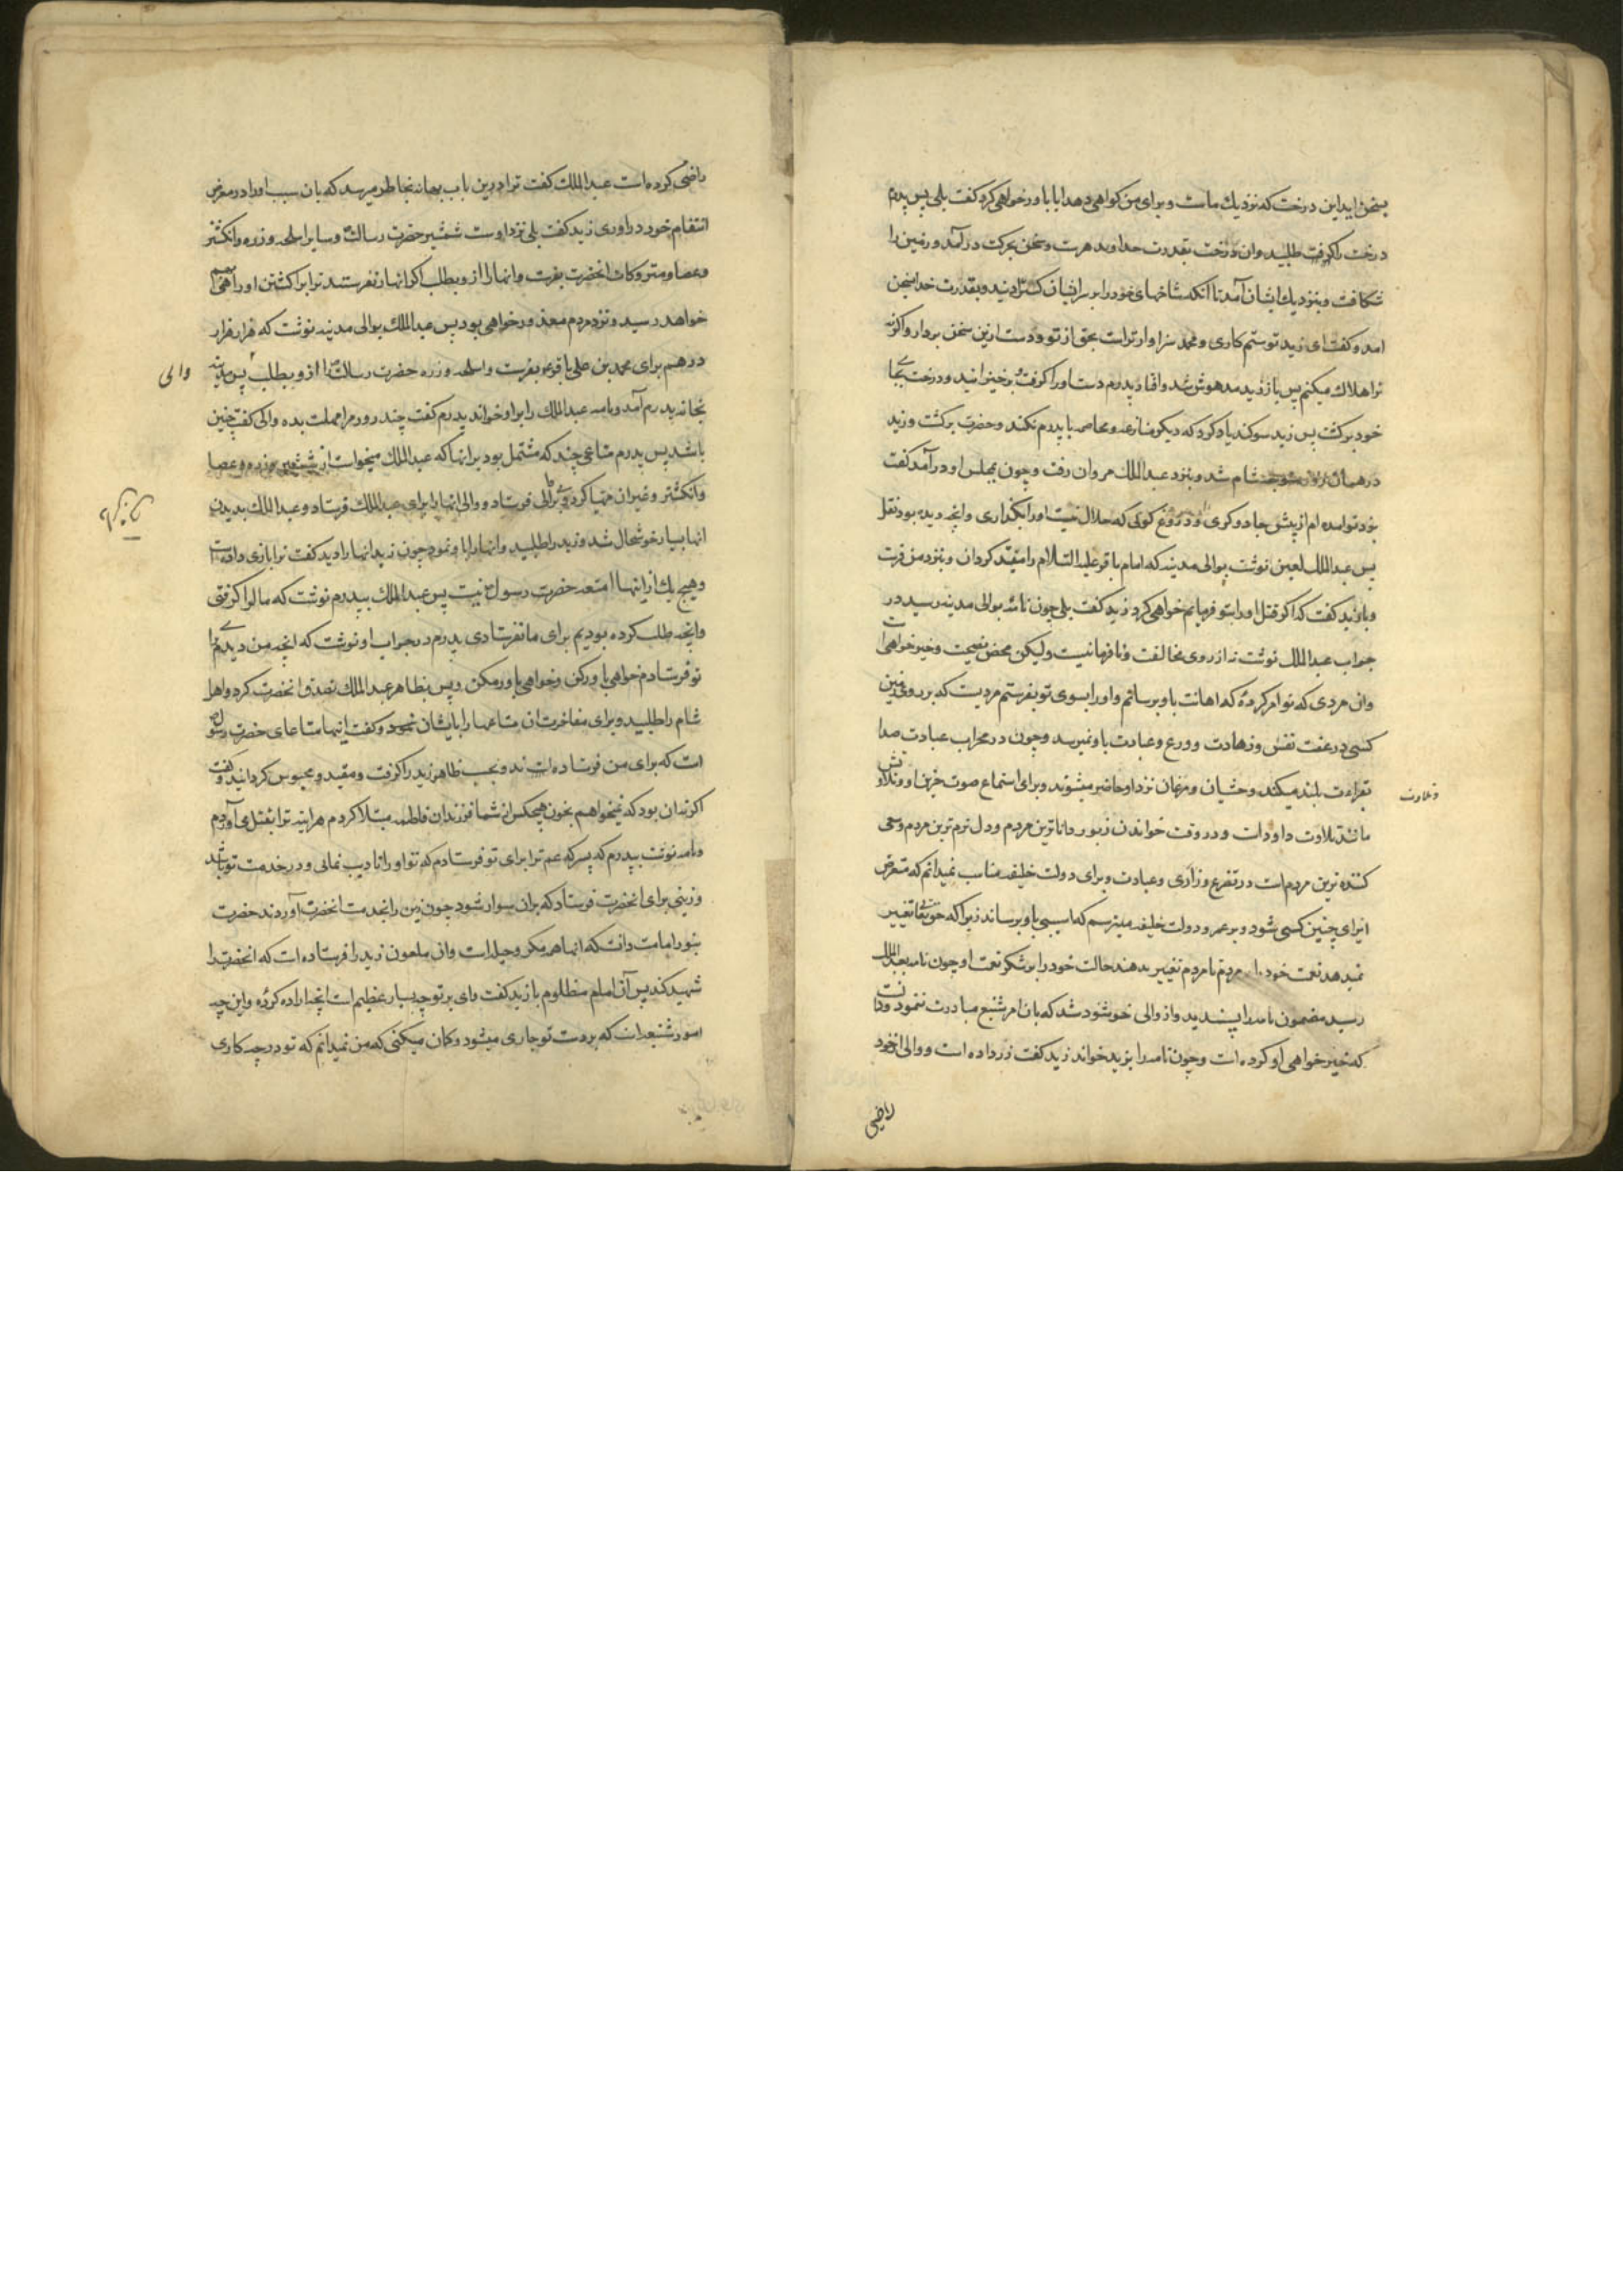 بسخن اید این درخت که نزدیك ماست و برای من کواهی دهد ایا باور خواهی کرد کفت بلی پس پدرم
درخت را کرفت طلبید وان درخت بقدرت خداوند هرت وسخن بحرکت درآمد و زمین را
شکافت و بنزدیك ایشان آمد تا آنکه شاخهای خود را بر سر ایشان کسترانید و بقدرت خدا بسخن
امد و کفت ای زید تو ستم کاری و محمد سزاوارتراست بحق از تو و دست ازین سخن بردار واکرنه
ترا هلاك میکنم پس باز زید مدهوش شد وافتاد پدرم دست اورا کرفت برخیزانید و درخت بجای
خود برکشت پس زید سوکند یاد کرد که دیکر منازعه و مخاصمه با پدرم نکند و حضرت برکشت و زید
در همان روز متوجه شام شد و بنزد عبدالملك مروان رفت و چون بمجلس او درآمد کفت
بنزد تو آمده ام از پیش جادوکری و دروغ کوئی که حلال نیست اورا بکذاری وانچه دیده بود نقل
پس عبدالملك لعین نوشت بوالی مدینه که امام باقر علیه السلام را مقید کردان و بنزد من فرست
و با زید کفت که اکر قتل اورا بتو فرمایم خواهی کرد زید کفت بلی چون نامه بوالی مدینه رسید در
جواب عبدالملك نوشت نه از روی مخالفت و نافرمانیست ولیکن محض نصیحت و خیرخواهی است
وان مردی که تو امر کرده که اهانت باو برسانم واورا بسوی تو بفرستم مردیست که بر روی زمین
کسی در عفت نفس و زهادت و ورع و عبادت باو نمیرسد و چون در محراب عبادت صدا
بقراءت بلند میکند وحشیان و مرغان نزد او حاضر میشوند و برای استماع صوت حزین او و تلاوتش
و تلاوت
مانند تلاوت داودست و در وقت خواندن زبور داناترین مردم و دل نرم ترین مردم و سعی
کننده ترین مردم است در تضرع و زاری و عبادت و برای دولت خلیفه مناسب نمیدانم که متعرض
ایذای چنین کسی شود و بر عمر و دولت خلیفه میترسم که اسیبی باو برساند زیرا که حق تعالی تغییر
نمیدهد نعمت خود را از مردم تا مردم تغییر بدهند حالت خود را بر شکر نعمت او چون نامه بعبدالملك
رسید مضمون نامه را پسندید واز والی خوشنود شد که بان امر شنیع مبادرت ننمود و دانست
که خیرخواهی او کرده است و چون نامه را بزید خواند زید کفت زر داده است و والی از خود
راضی
راضی کرده است عبدالملك کفت ترا درین باب بهانه بخاطر میرسد که بان سبب اورا در معرض
انتقام خود دراوری زید کفت بلی نزد اوست شمشیر حضرت رسالت و سایر اسلحه و زره وانکشتر
وعصا و متروکات انحضرت بفرست وانها را ازو بطلب اکر انها را نفرستد ترا برا کشتن او راهی بهم
خواهد رسید و نزد مردم معذور خواهی بود پس عبدالملك بوالی مدینه نوشت که هزار هزار
درهم برای محمد بن علی باقر ع بفرست واسلحه و زره حضرت رسالت را ازو بطلب پس مدینه
والی
بخانه پدرم آمد و نامه عبدالملك را بر او خواند پدرم کفت چند روز مرا مهلت بده والی کفت چنین
باشد پس پدرم متاعی چند که مشتمل بود بر انها که عبدالملك میخواست از شمشیر و زره و عصا
وانکشتر و غیر ان مهیا کرد و برای والی فرستاد و والی انها را برای عبدالملك فرستاد و عبدالملك بدیدن
انها بسیار خوشحال شد و زید را طلبید وانها را باو نمود چون زید انها را دید کفت ترا بازی داده است
و هیچ یك از اینها امتعه حضرت رسول نیست پس عبدالملك بپدرم نوشت که مال را کرفتی
وانچه طلب کرده بودیم برای ما نفرستادی پدرم در جواب او نوشت که انچه من دیدم برای
تو فرستادم خواهی باور کن و خواهی باور مکن و پس بظاهر عبدالملك تصدق انحضرت کرد و اهل
شام را طلبید و برای مفاخرت ان متاعها را بایشان نمود و کفت اینها متاعای حضرت رسول
است که برای من فرستاده است و بحسب ظاهر زید را کرفت و مقید و محبوس کردانید و کفت
اکر نه ان بود که نمیخواهم بخون هیچکس از شما فرزندان فاطمه مبتلا کردم هراینه ترا بقتل می آوردم
و نامه نوشت بپدرم که پسرکه عم ترا برای تو فرستادم که تو اورا تادیب نمائی و در خدمت تو باشد
و زینی برای انحضرت فرستاد که بران سوار شود چون زین را بخدمت انحضرت آوردند حضرت
بنور امامت دانست که انها همه مکر و حیله است وان ملعون زید را فرستاده است که انحضرت را
شهید کند پس آن امام مظلوم با زید کفت وای بر تو چه بسیار عظیم است انچه اراده کرده و این چه
امور شنیعه است که بر دست تو جاری میشود و کمان میکنی که من نمیدانم که تو در چه کاری